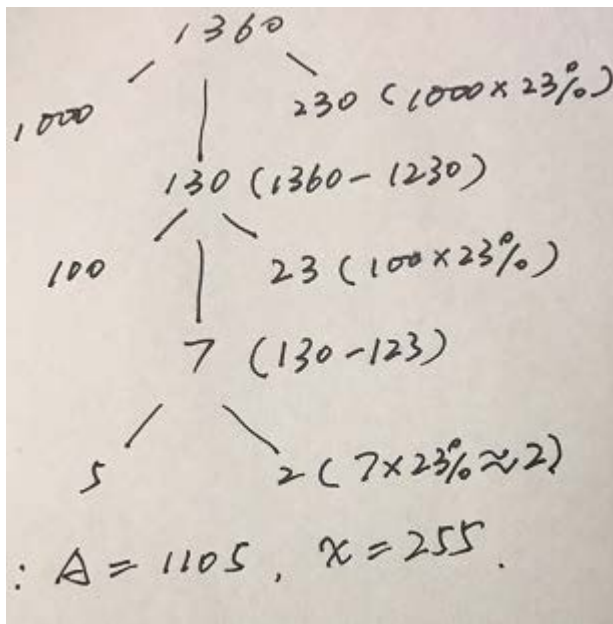 1360
1000 230 (1000×23%)
130 (1360-1230)
100 23 (100×23%)
7 (130-123)
5 2 (7×23%≈2)
: A = 1105, x = 255.